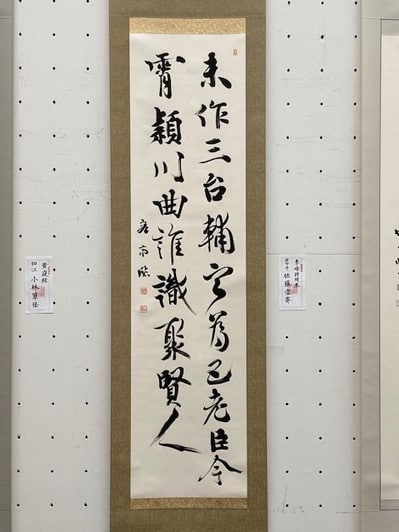 未作三台輔寧為五老臣今
霄潁川曲誰識聚賢人
黄庭經
小林
佐藤